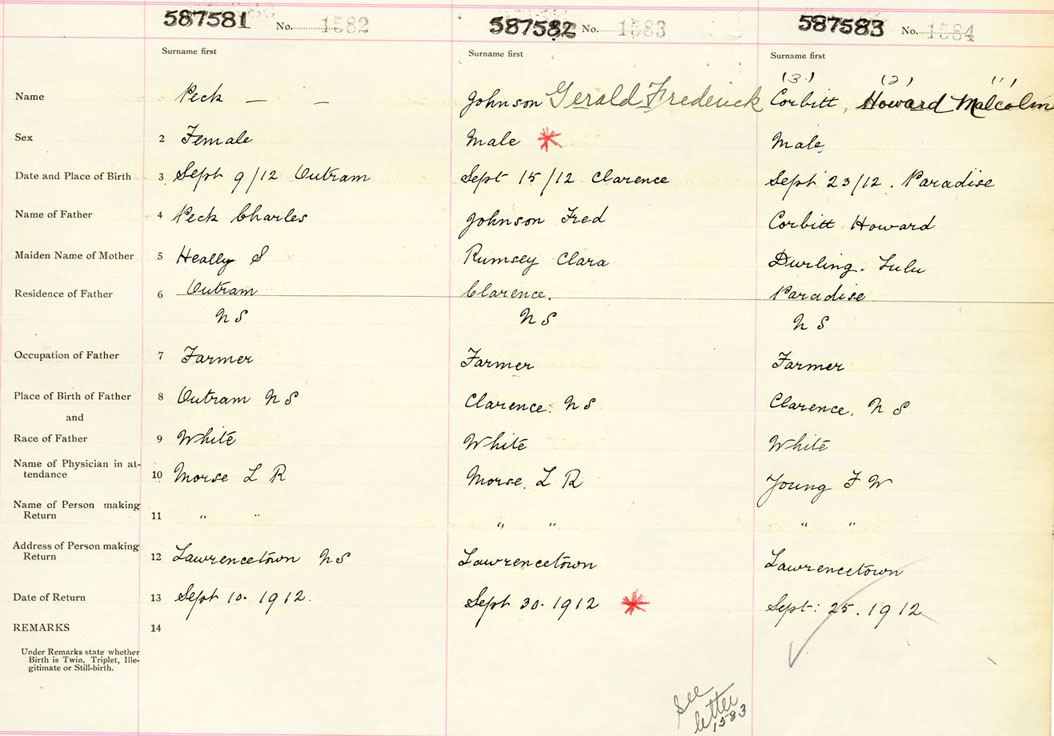 587581 No. 1582 587582 No. 1583 587583 No. 1584
Surname first Surname first Surname first
(3) (2) (1)
Name Peck — — Johnson Gerald Frederick Corbitt, Howard Malcolm
Sex 2 Female Male * Male
Date and Place of Birth 3 Sept 9/12 Outram Sept 15/12 Clarence Sept 23/12. Paradise
Name of Father 4 Peck Charles Johnson Fred Corbitt Howard
Maiden Name of Mother 5 Heally S Rumsey Clara Durling. Lulu
Residence of Father 6 Outram Clarence. Paradise
N S N S N S
Occupation of Father 7 Farmer Farmer Farmer
Place of Birth of Father 8 Outram N S Clarence. N S Clarence. N S
and
Race of Father 9 White White White
Name of Physician in at-
tendance 10 Morse L R Morse. L R Young F W
Name of Person making
Return 11 " " " " " "
Address of Person making
Return 12 Lawrencetown N S Lawrencetown Lawrencetown
Date of Return 13 Sept 10. 1912. Sept 30. 1912 * Sept: 25. 1912
REMARKS 14
Under Remarks state whether
Birth is Twin, Triplet, Ille-
gitimate or Still-birth.
See
letter
1583